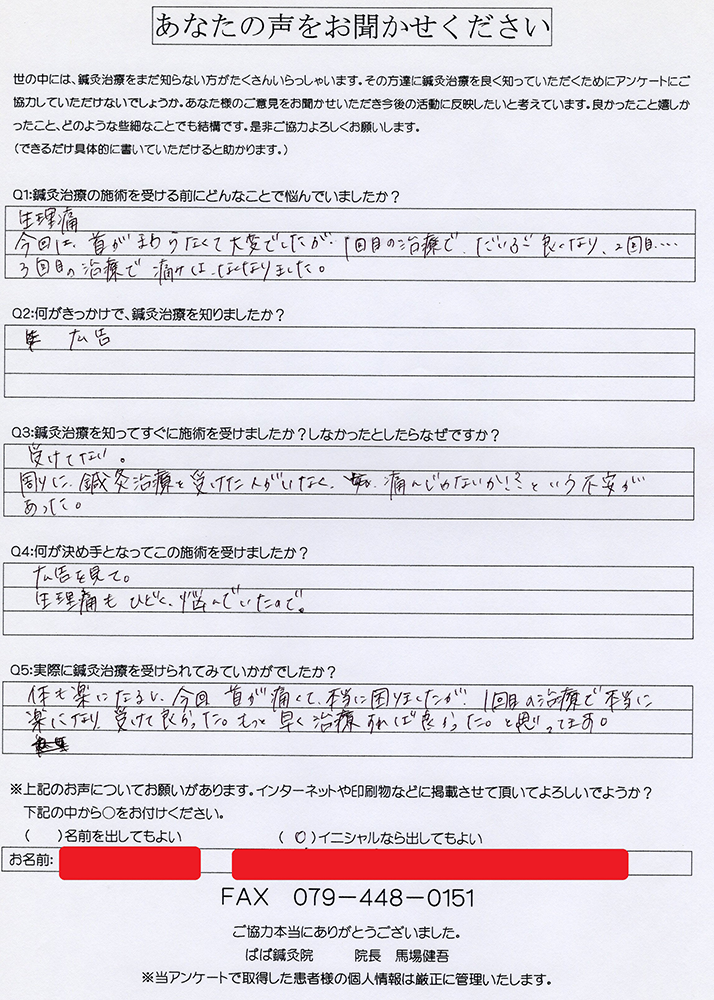 あなたの声をお聞かせください
世の中には、鍼灸治療をまだ知らない方がたくさんいらっしゃいます。その方達に鍼灸治療を良く知っていただくためにアンケートにご
協力していただけないでしょうか。あなた様のご意見をお聞かせいただき今後の活動に反映したいと考えています。良かったこと嬉しか
ったこと、どのような些細なことでも結構です。是非ご協力よろしくお願いします。
(できるだけ具体的に書いていただけると助かります。)
Q1:鍼灸治療の施術を受ける前にどんなことで悩んでいましたか?
生理痛
今回は、首がまわらなくて大変でしたが、1回目の治療で、だいぶ良くなり、2回目、…
3回目の治療で痛みは、なくなりました。
Q2:何がきっかけで、鍼灸治療を知りましたか?
広告
Q3:鍼灸治療を知ってすぐに施術を受けましたか?しなかったとしたらなぜですか?
受けてない。
周りに、鍼灸治療を受けた人がいなく、痛んじゃないか!?という不安が
あった。
Q4:何が決め手となってこの施術を受けましたか?
広告を見て。
生理痛もひどく、悩んでいたので。
Q5:実際に鍼灸治療を受けられてみていかがでしたか?
体も楽になるし、今回、首が痛くて、本当に困りましたが、1回目の治療で本当に
楽になり、受けて良かった。もっと早く治療すれば良かった。と思ってます。
※上記のお声についてお願いがあります。インターネットや印刷物などに掲載させて頂いてよろしいでようか?
下記の中から○をお付けください。
( )名前を出してもよい (○)イニシャルなら出してもよい
お名前:
FAX 079-448-0151
ご協力本当にありがとうございました。
ばば鍼灸院 院長 馬場健吾
※当アンケートで取得した患者様の個人情報は厳正に管理いたします。